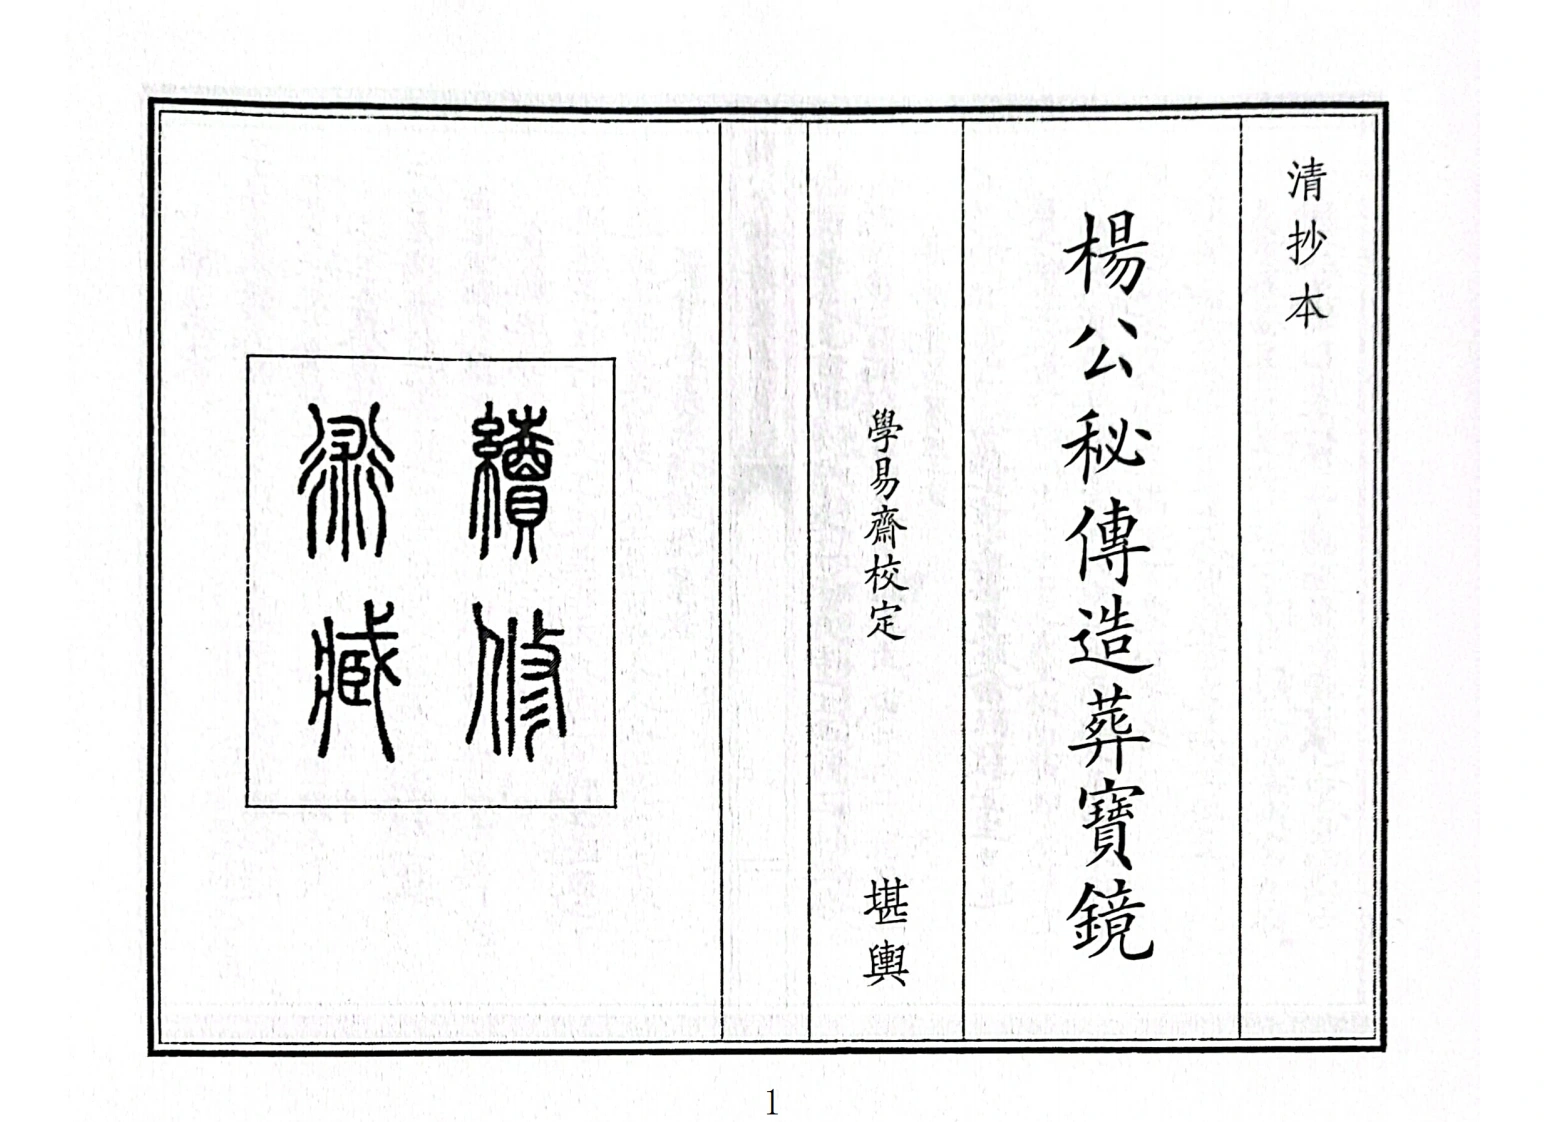 清抄本
楊公秘傳造葬寶鏡
學易齋校定
堪輿
續修
藏
1